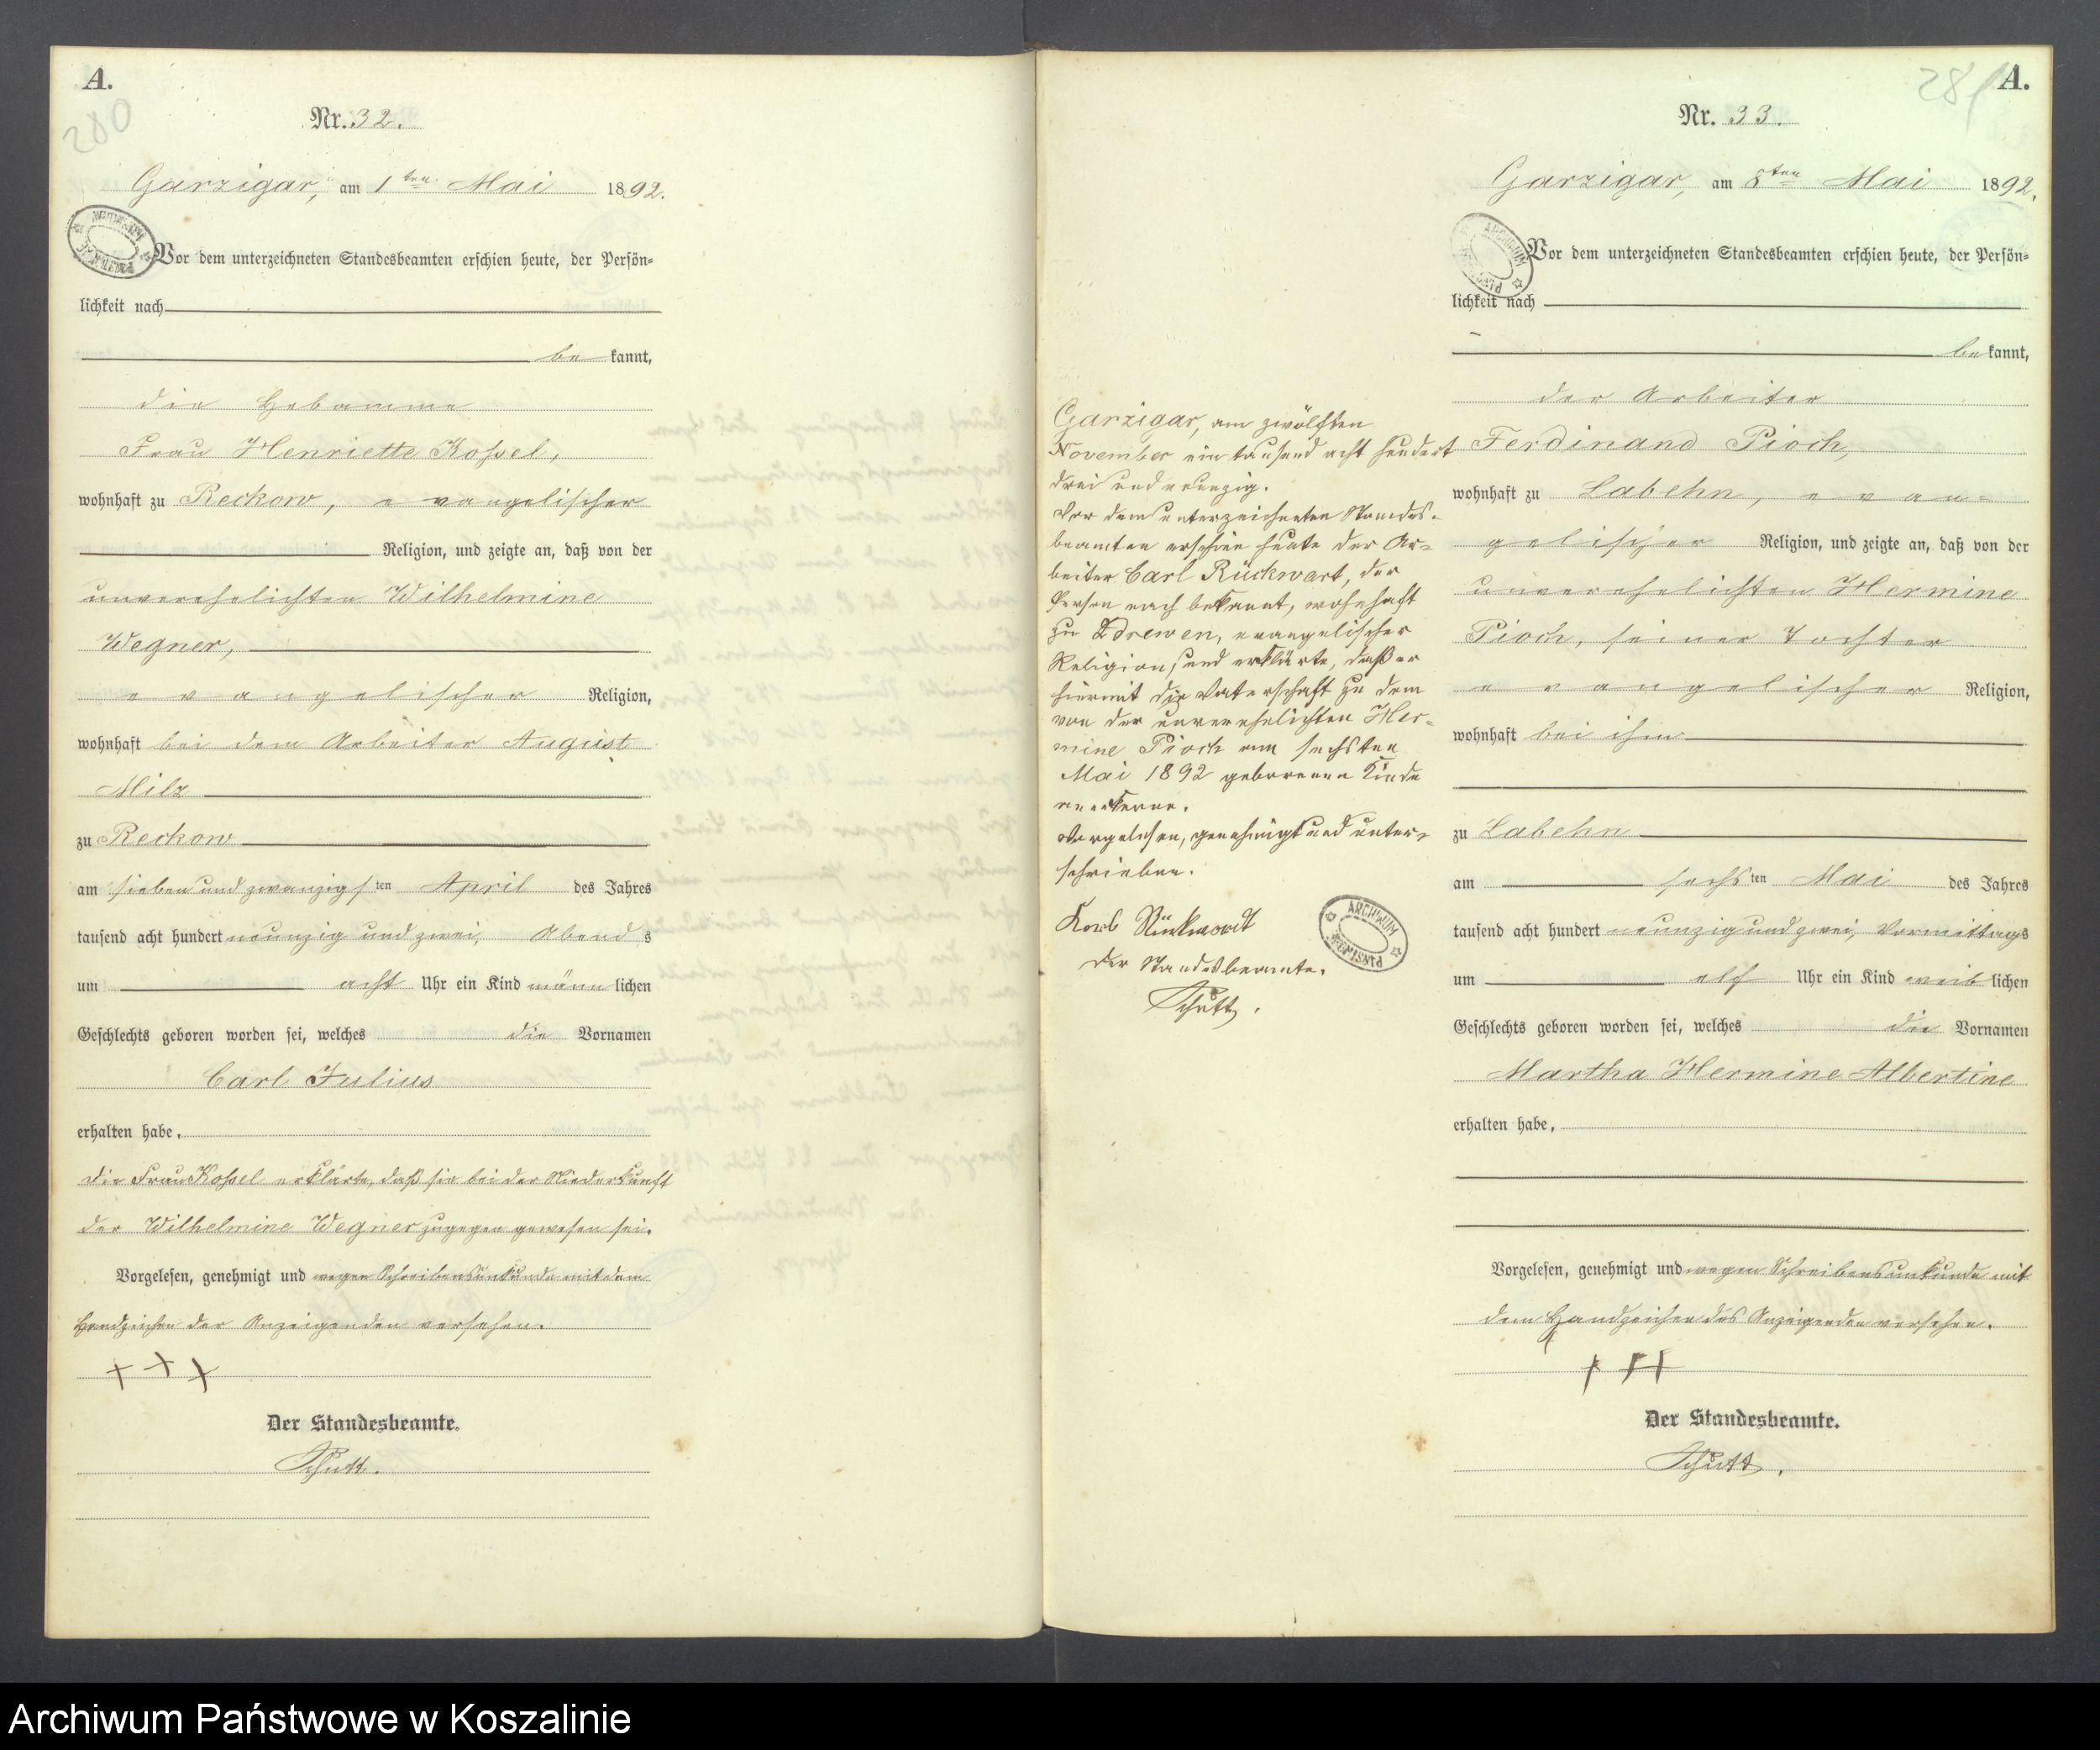 A.
280
Nr. 32.
Garzigar, am 1ten Mai 1892.
Vor dem unterzeichneten Standesbeamten erschien heute, der Persön-
lichkeit nach
be kannt,
die Hebamme
Frau Henriette Kossel,
wohnhaft zu Reckow, evangelischer
Religion, und zeigte an, daß von der
unverehelichten Wilhelmine
Wegner,
evangelischer Religion,
wohnhaft bei dem Arbeiter August
Milz
zu Reckow
am sieben und zwanzigsten April des Jahres
tausend acht hundert neunzig und zwei, Abends
um acht Uhr ein Kind männlichen
Geschlechts geboren worden sei, welches die Vornamen
Carl Julius
erhalten habe.
Die Frau Kossel erklärte, daß sie bei der Niederkunft
der Wilhelmine Wegner zugegen gewesen sei.
Vorgelesen, genehmigt und wegen Schreibensunkunde mit dem
Handzeichen der Anzeigenden versehen.
+ + +
Der Standesbeamte.
Schutt.
Garzigar, am zwölften
November ein tausend acht hundert
drei und neunzig.
Vor dem unterzeichneten Standes-
beamten erschien heute der Ar-
beiter Carl Rückwart, der
Person nach bekannt, wohnhaft
zu Zdrewen, evangelischer
Religion, und erklärte, daß er
hiermit die Vaterschaft zu dem
von der unverehelichten Her-
mine Pioch am sechsten
Mai 1892 geborenen Kinde
anerkenne.
Vorgelesen, genehmigt und unter-
schrieben.
Karl Rückwardt
Der Standesbeamte.
Schutt.
ARCHIWUM
281
A.
Nr. 33.
Garzigar, am 8ten Mai 1892.
Vor dem unterzeichneten Standesbeamten erschien heute, der Persön-
lichkeit nach
be kannt,
der Arbeiter
Ferdinand Pioch,
wohnhaft zu Labehn, evan-
gelischer Religion, und zeigte an, daß von der
unverehelichten Hermine
Pioch, seiner Tochter
evangelischer Religion,
wohnhaft bei ihm
zu Labehn
am sechsten Mai des Jahres
tausend acht hundert neunzig und zwei, Vormittags
um elf Uhr ein Kind weiblichen
Geschlechts geboren worden sei, welches die Vornamen
Martha Hermine Albertine
erhalten habe,
Vorgelesen, genehmigt und wegen Schreibensunkunde mit
dem Handzeichen des Anzeigenden versehen.
+ + +
Der Standesbeamte.
Schutt.
Archiwum Państwowe w Koszalinie